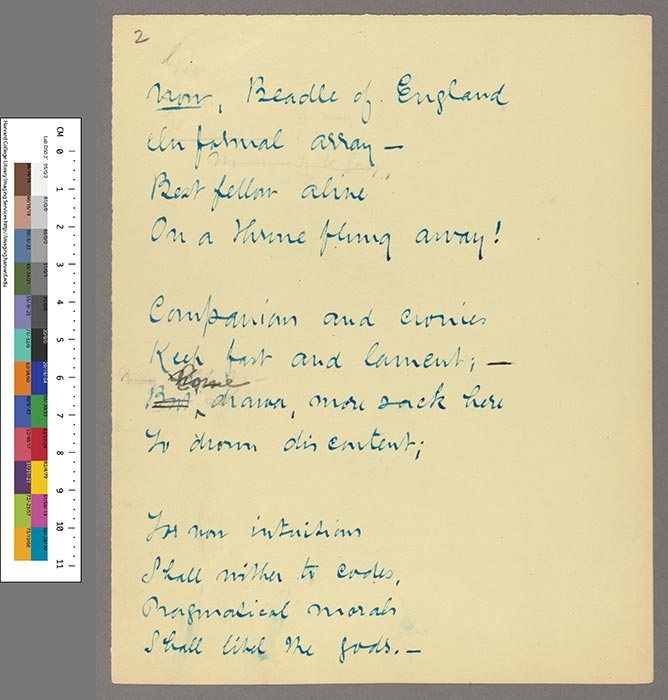 2
Now, Beadle of England
In formal array —
Best fellow alive
On a throne flung away!
Companions and cronies
Keep fast and lament; —
Come
But drawer, more sack here
To drown discontent;
For now intuitions
Shall wither to codes,
Pragmatical morals
Shall libel the gods. —
CM 0 1 2 3 4 5 6 7 8 9 10 11
Harvard College Library Imaging Services http://imaging.harvard.edu